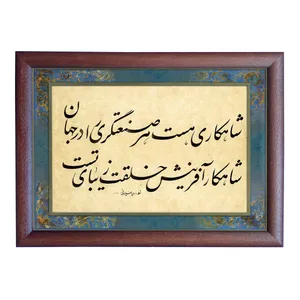 شاهکاری هست هر صنعتگری را در جهان
شاهکار آفرینش خلقت زیبای تست